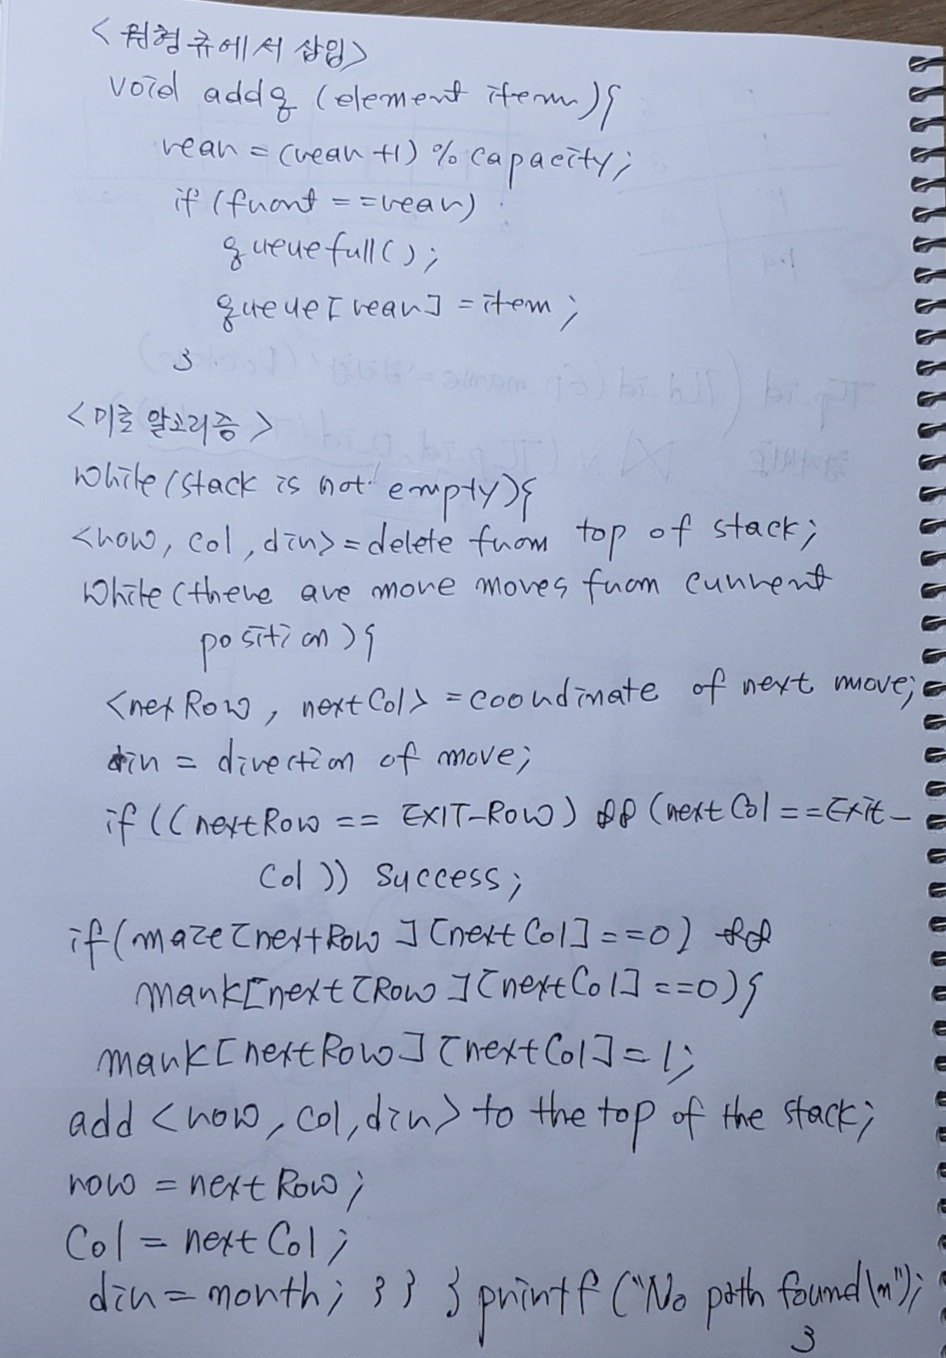 <원형 큐에서 삽입>
void addq (element item){
rear = (rear +1) % capacity;
if (front ==rear)
queuefull();
queue[rear] = item;
}
<미로 알고리즘>
while(stack is not empty){
<row, col, dir> = delete from top of stack;
while(there are more moves from current
position){
<nexRow, nextCol> = coordinate of next move;
dir = direction of move;
if ((nextRow == EXIT-Row) && (next Col ==Exit-
Col )) Success;
if(maze[nextRow][next Col]==0) &&
mark[next[Row][nextCol]==0){
mark[nextRow][nextCol]=1;
add <row, col, dir> to the top of the stack;
row = next Row;
Col = next Col;
dir = north; } } } printf ("No path found\n");
}